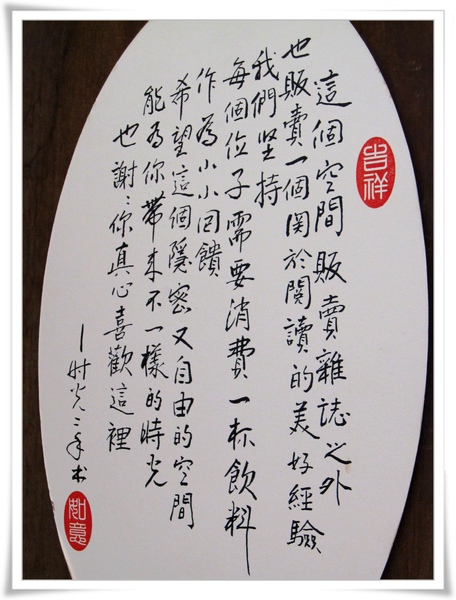 吉祥
這個空間販賣雜誌之外
也販賣一個関於閱讀的美好經驗
我們坚持
每個位子需要消費一杯飲料
作為小小回饋
希望這個隱密又自由的空間
能為你帶來不一樣的時光
也謝謝你真心喜歡這裡
如意